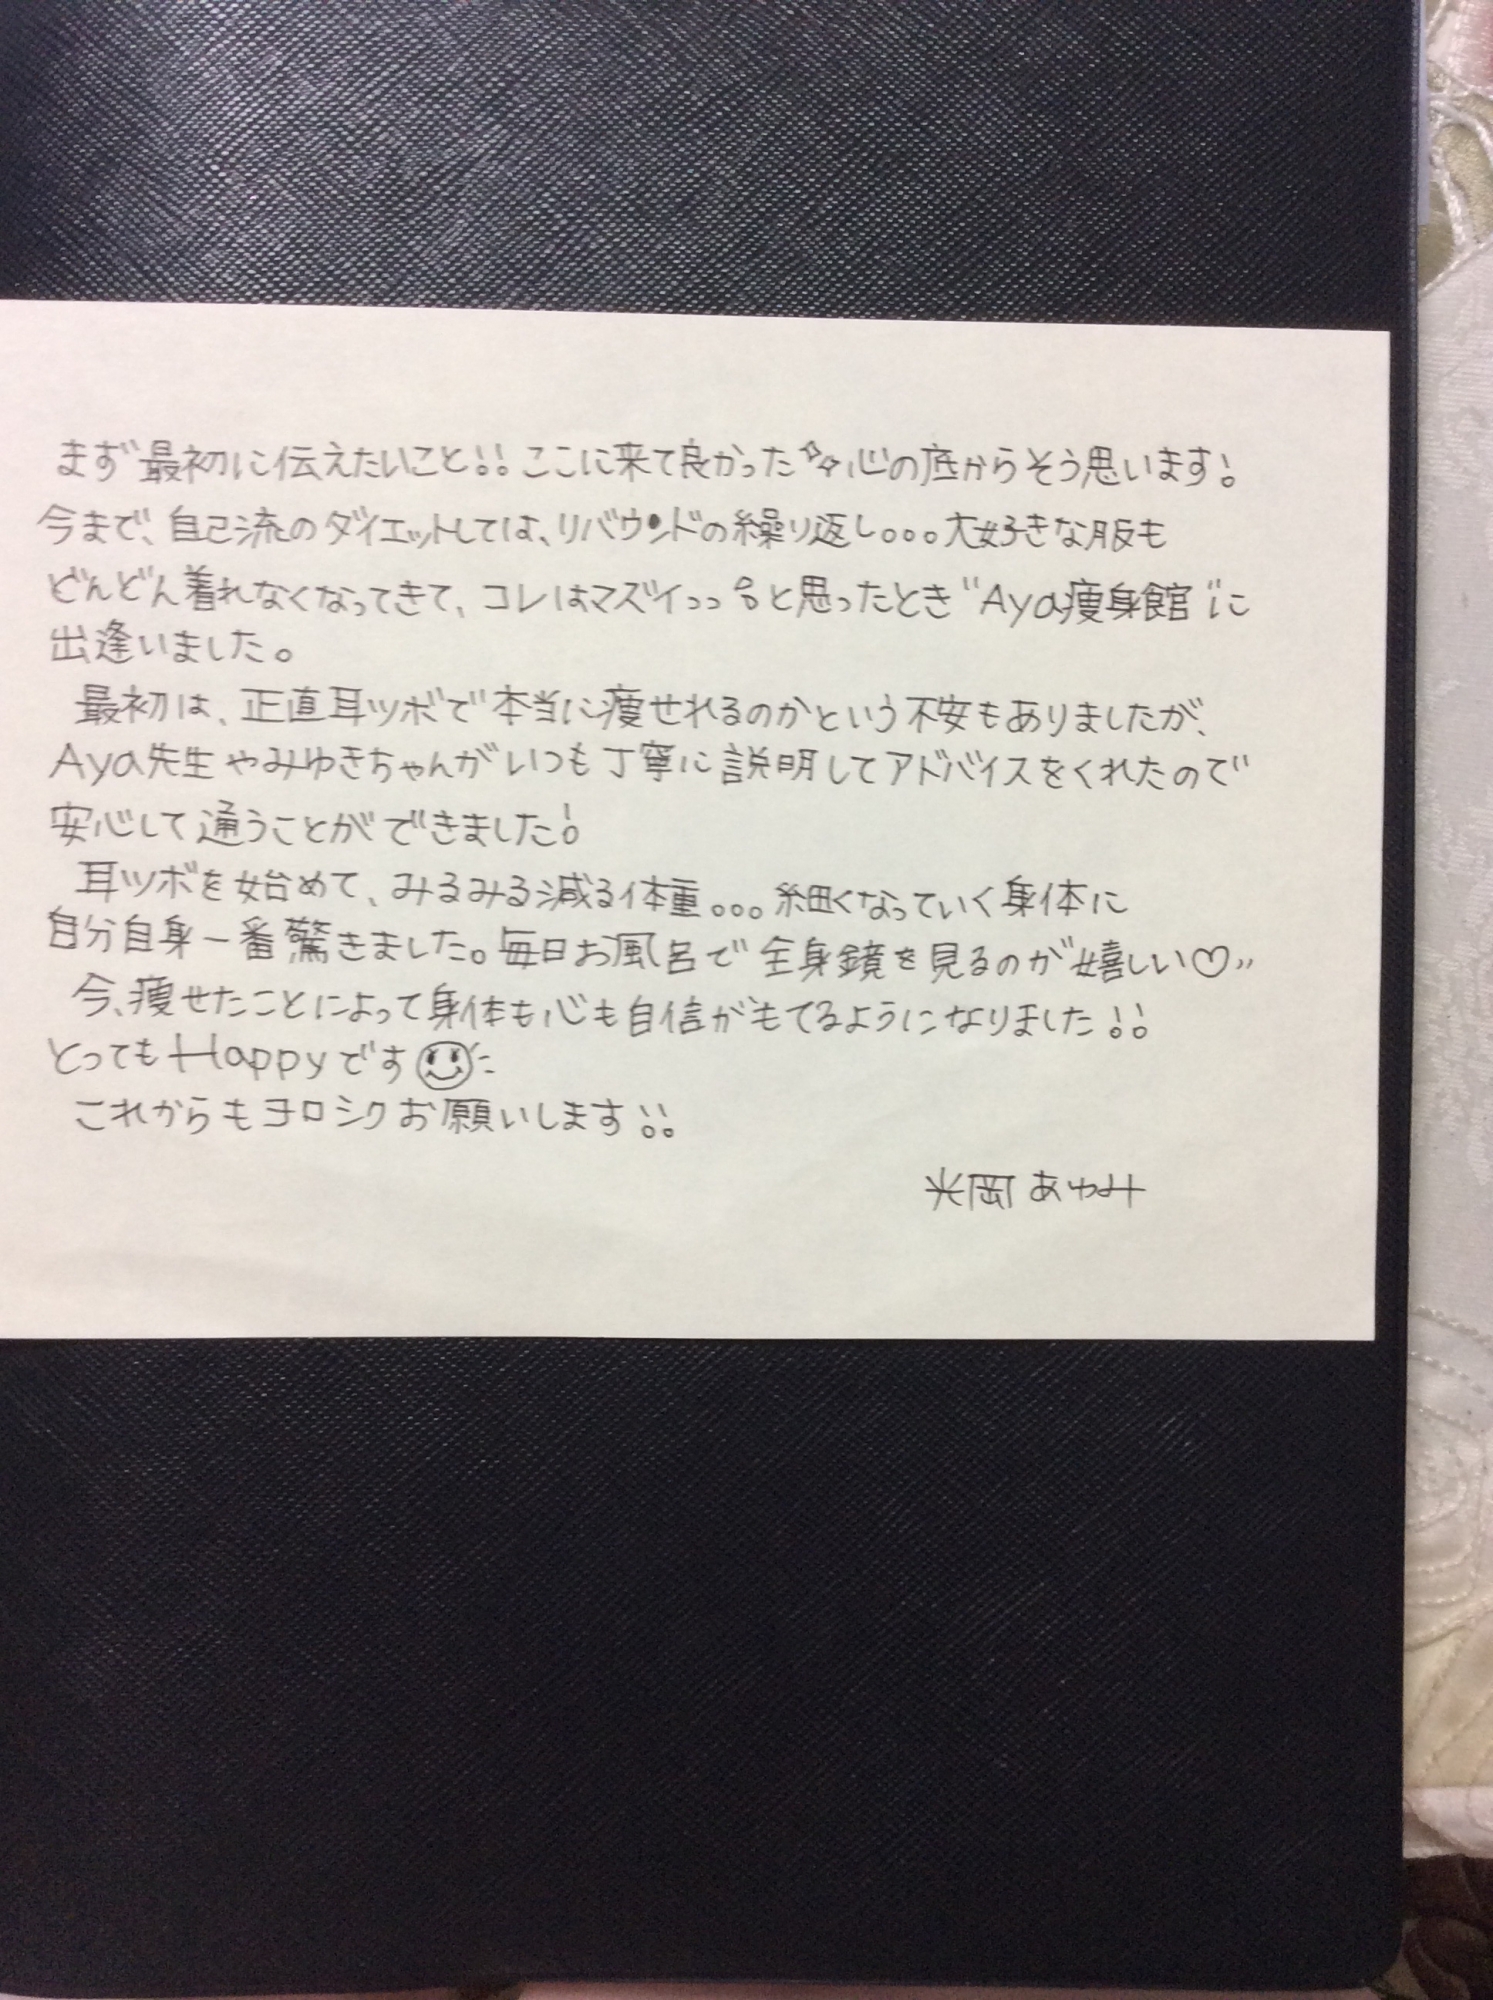 まず最初に伝えたいこと!! ここに来て良かった✨心の底からそう思います!
今まで、自己流のダイエットしては、リバウンドの繰り返し。。。大好きな服も
どんどん着れなくなってきて、コレはマズイっっ。と思ったとき"Aya痩身館"に
出逢いました。
最初は、正直耳ツボで本当に痩せれるのかという不安もありましたが、
Aya先生やみゆきちゃんがいつも丁寧に説明してアドバイスをくれたので
安心して通うことができました!
耳ツボを始めて、みるみる減る体重。。。細くなっていく身体に
自分自身一番驚きました。毎日お風呂で全身鏡を見るのが嬉しい♡〃
今、痩せたことによって身体も心も自信がもてるようになりました!!
とってもHappyです☺
これからもヨロシクお願いします!!
光岡あゆみ